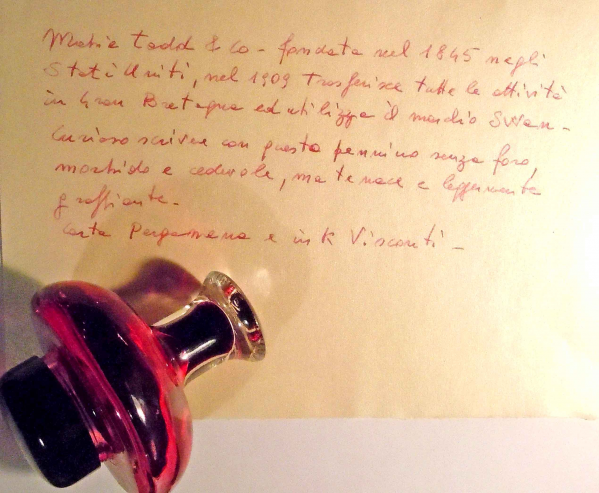 Mabie Todd & Co - fondata nel 1845 negli
Stati Uniti, nel 1909 trasferisce tutte le attività
in Gran Bretagna ed utilizza il marchio Swan -
Curioso scrivere con questo pennino senza foro,
morbido e cedevole, ma tenace e leggermente
graffiante -
Carta Pergamena e ink Visconti -